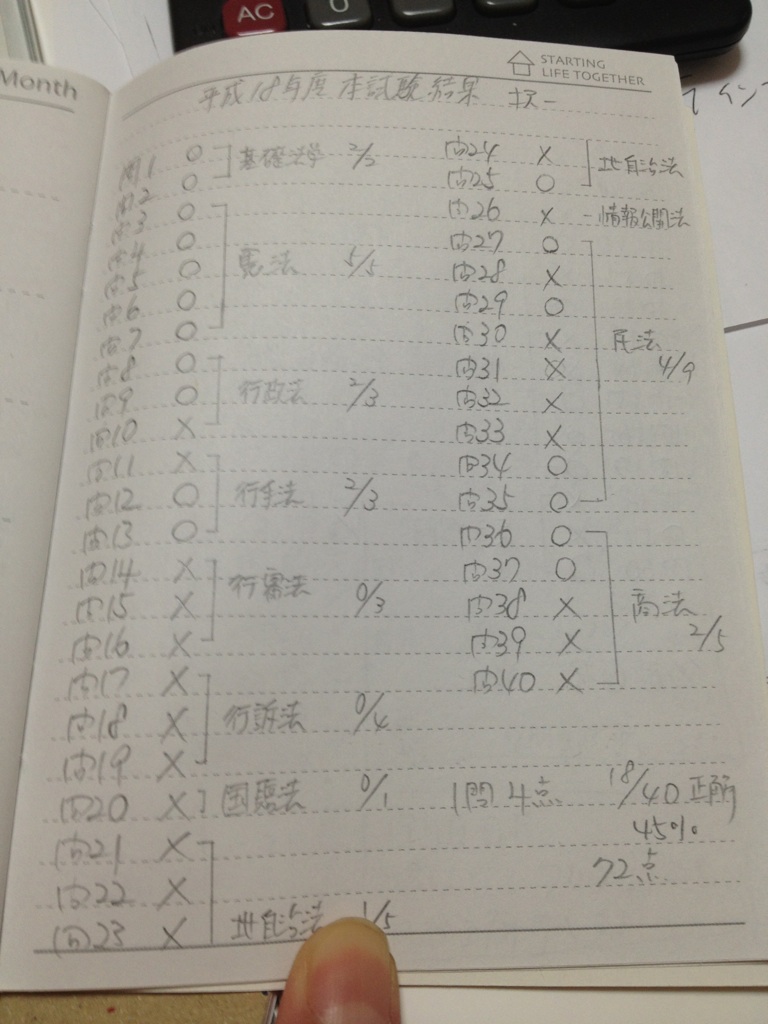 AC
0
Month
STARTING
LIFE TOGETHER
平成18年度 本試験結果 択一
問1 ○ 基礎法学 2/2
問2 ○
問3 ○
問4 ○
問5 ○ 憲法 5/5
問6 ○
問7 ○
問8 ○
問9 ○ 行政法 2/3
問10 ×
問11 ×
問12 ○ 行手法 2/3
問13 ○
問14 ×
問15 × 行審法 0/3
問16 ×
問17 ×
問18 × 行訴法 0/4
問19 ×
問20 × 国賠法 0/1
問21 ×
問22 ×
問23 × 地自治法 1/5
問24 × 地自治法
問25 ○
問26 × 情報公開法
問27 ○
問28 ×
問29 ○
問30 × 民法
問31 × 4/9
問32 ×
問33 ×
問34 ○
問35 ○
問36 ○
問37 ○
問38 × 商法
問39 × 2/5
問40 ×
1問4点 18/40 正解
45%
72点